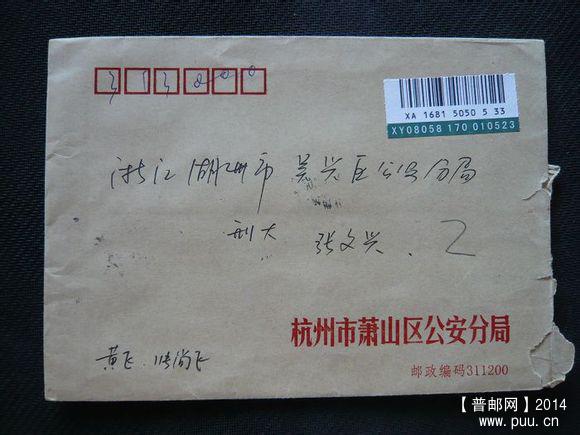 313000
XA 1681 5050 5 33
XY08058 170 010523
浙江湖州市吴兴区公安分局
刑大 张文兴
杭州市萧山区公安分局
邮政编码311200
黄飞、
【普邮网】2014
www.puu.cn